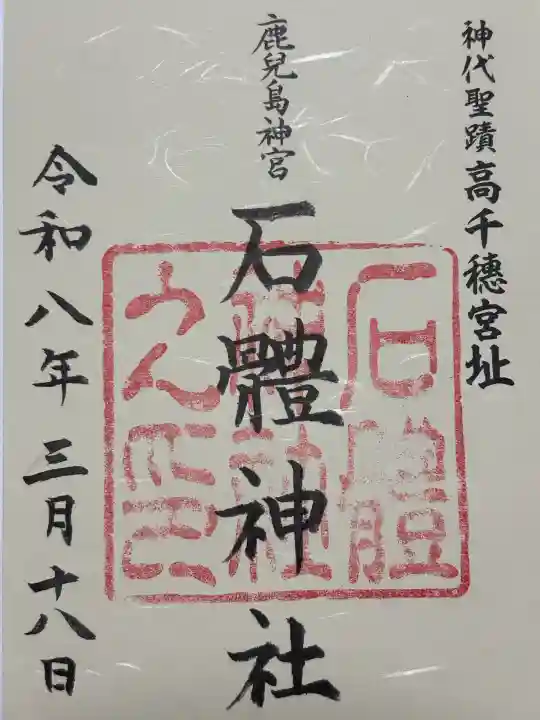 神代聖蹟高千穗宮址
鹿兒島神宮
石體神社
令和八年三月十八日
石體神社之印